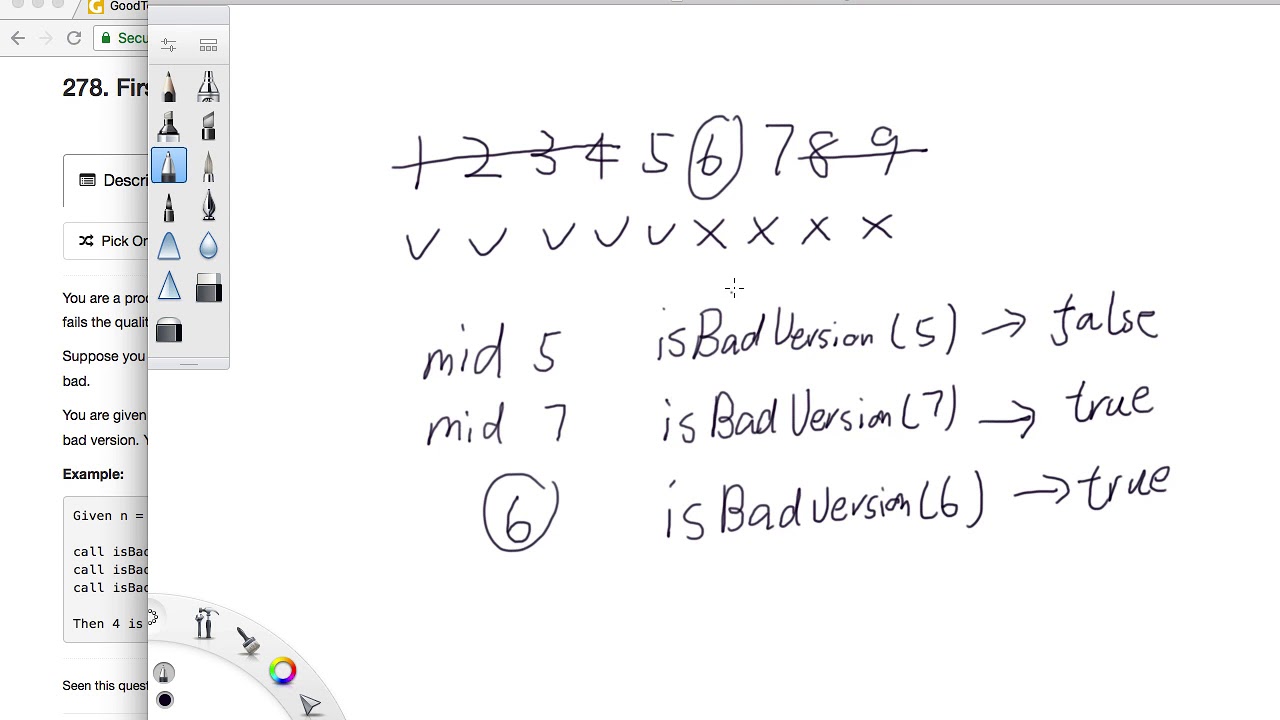 GoodTo
Secu
278. Firs
Descri
Pick On
You are a prod
fails the qualit
Suppose you
bad.
You are given
bad version. Y
Example:
Given n =
call isBad
call isBad
call isBad
Then 4 is
Seen this quest
1 2 3 4 5 6 7 8 9
✓ ✓ ✓ ✓ ✓ X X X X
mid 5 isBadVersion(5) → false
mid 7 isBadVersion(7) → true
6 isBadVersion(6) → true